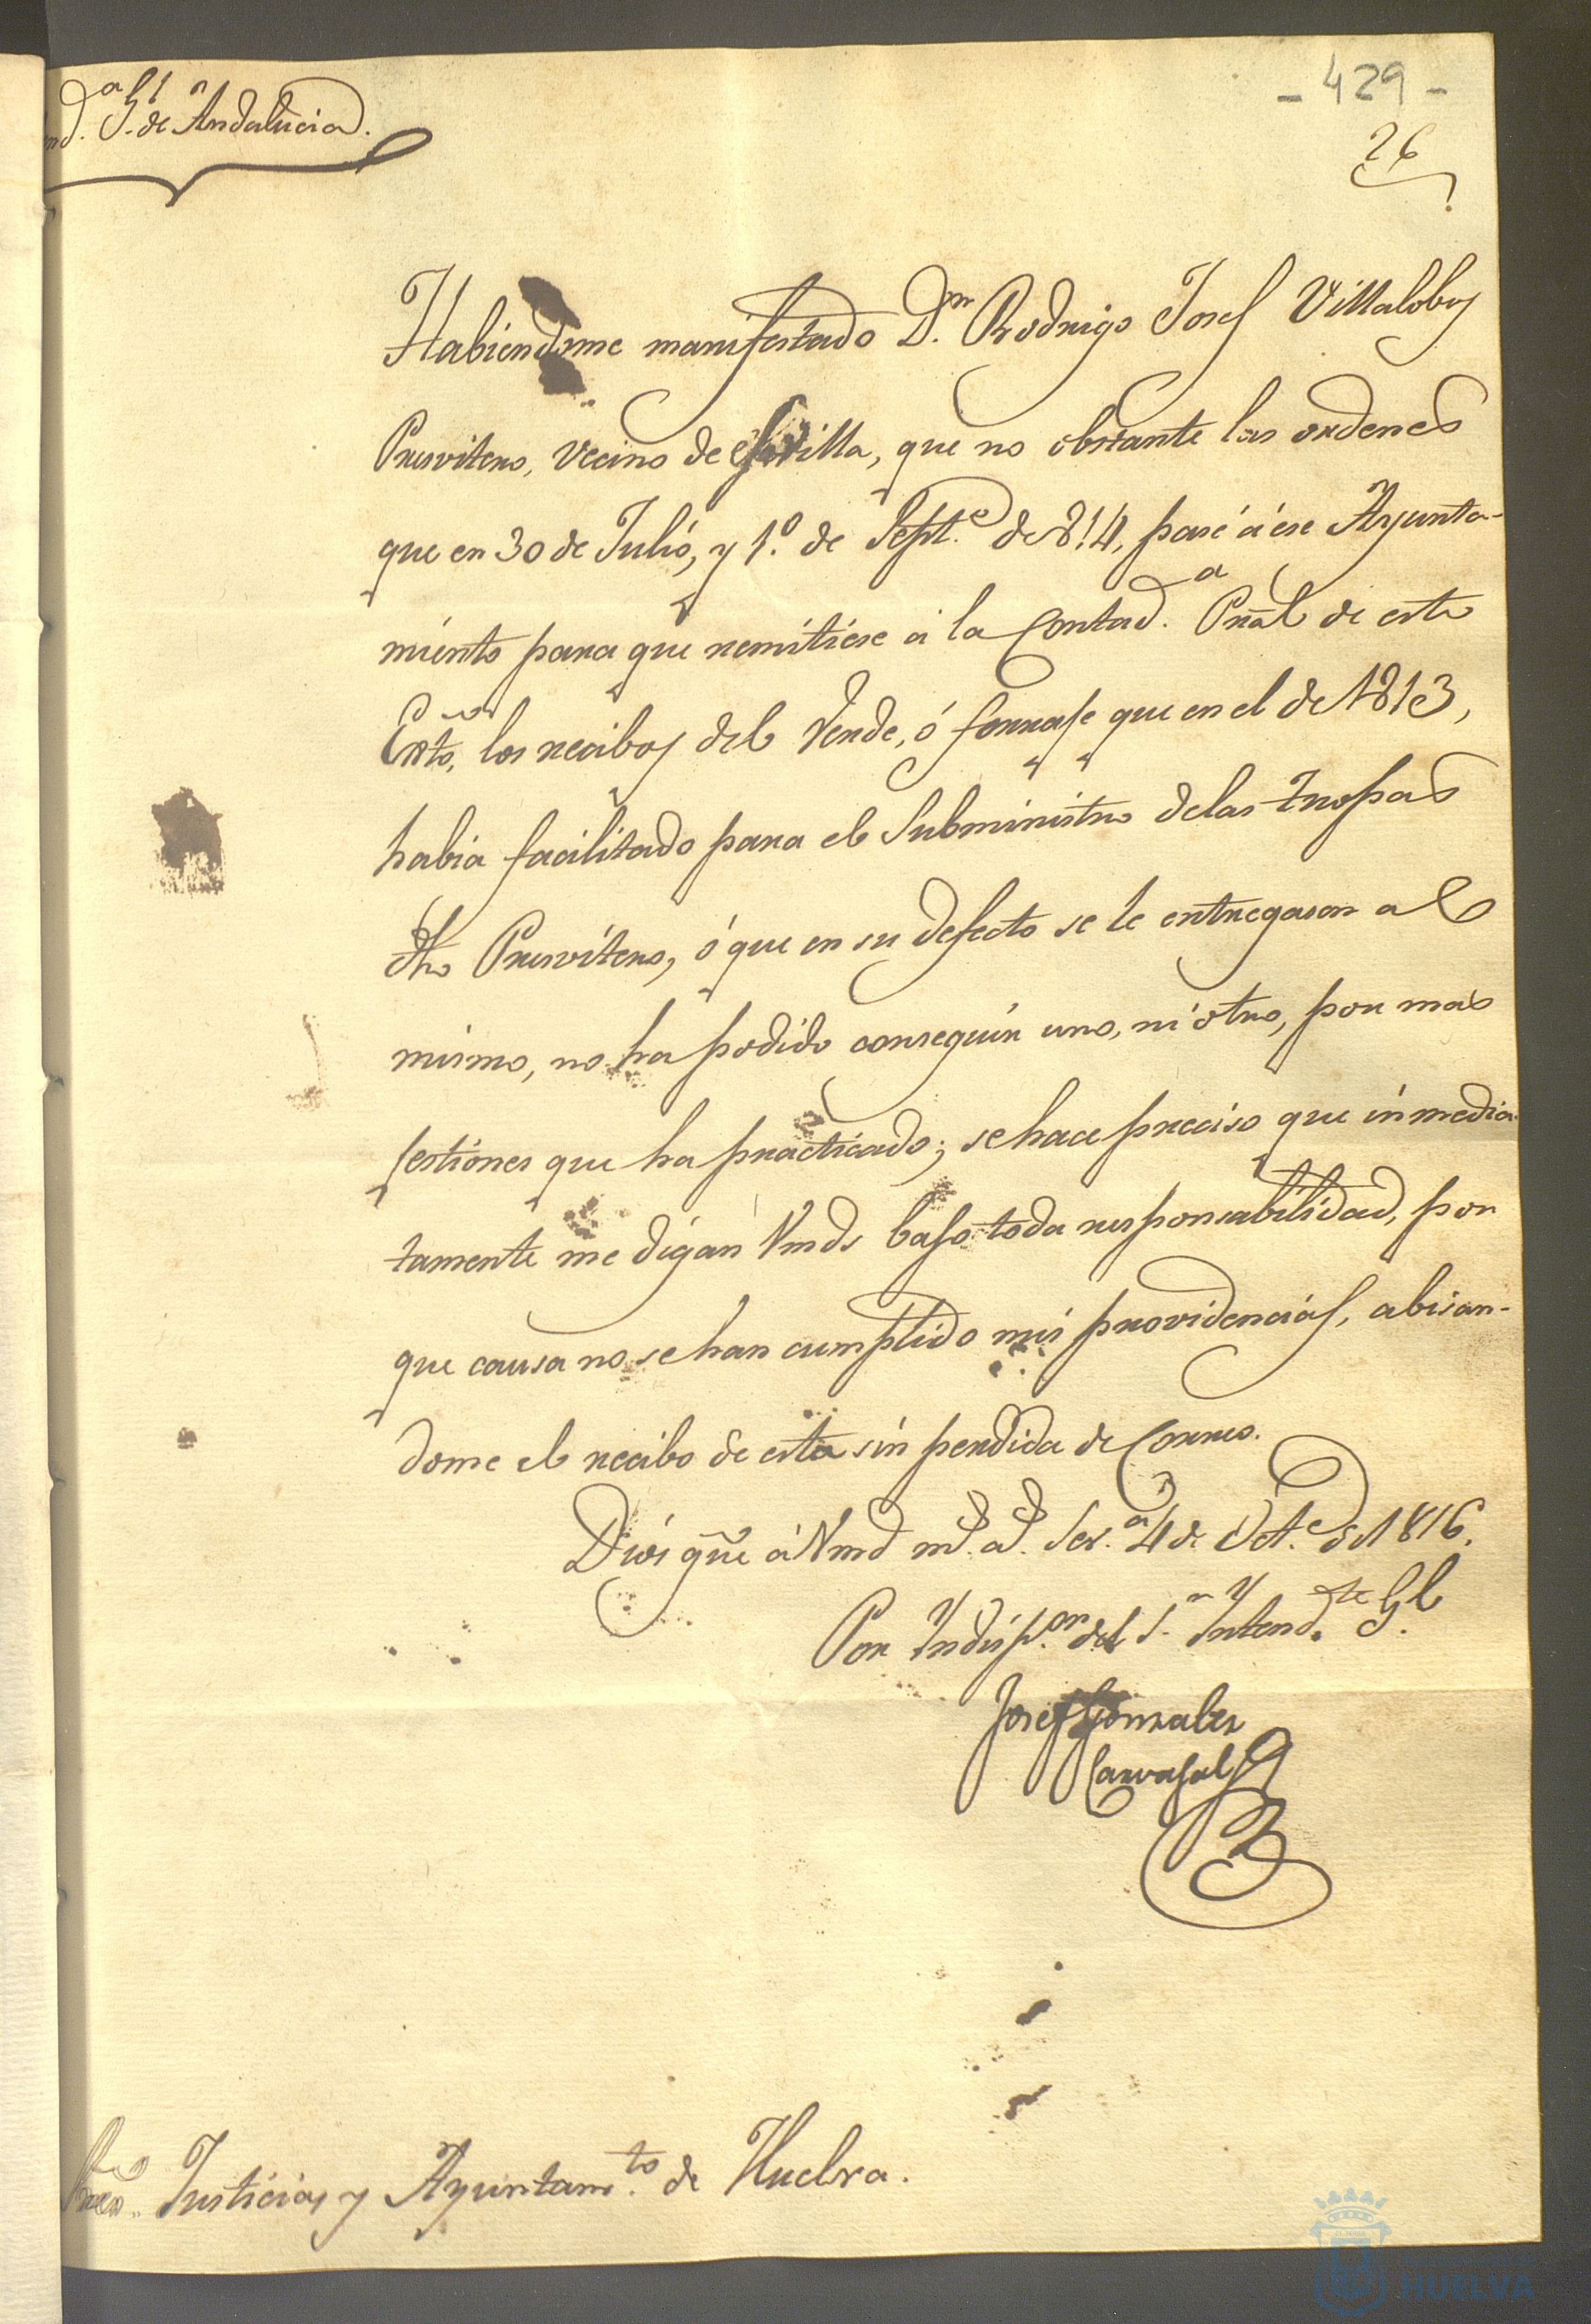 nd.ª Gl. de Andalucia.
- 429 -
26
Habiendome manifestado D.n Rodrigo Josef Villalobos
Presvitero, vecino de Sevilla, que no obstante las ordenes
que en 30 de Julio, y 1.º de Sept.e de 814, pasé á ese Ayunta-
miento para que remitiese á la Contad.a Pñal de este
Exto, los recibos del Verde, ó forrage que en el de 1813,
habia facilitado para el Subministro delas tropas
dho Presvitero, ó que en su defecto se le entregasen al
mismo, no ha podido conseguir uno, ni otro, por mas
gestiones que ha practicado; se hace preciso que inmedia-
tamente me digan Vmds bajo toda responsabilidad, por
que causa no se han cumplido mis providencias, abisan-
dome el recibo de esta sin perdida de Correo.
Dios gue á Vmd m.s a.s Sev.a 4 de Oct.e de 1816.
Por Indisp.on del S.r Intend.te Gl.
Josef Gonzalez
Carvajal
Justicia y Ayuntam.to de Huelva.
HUELVA